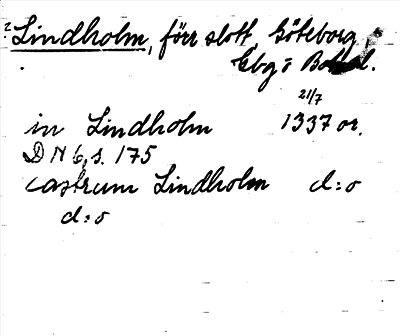 2 Lindholm, förr slott, Göteborg,
Gbg o Bohusl.
21/7
in Lindholm 1337 or.
DN 6, s. 175
castrum Lindholm d:o
d:o